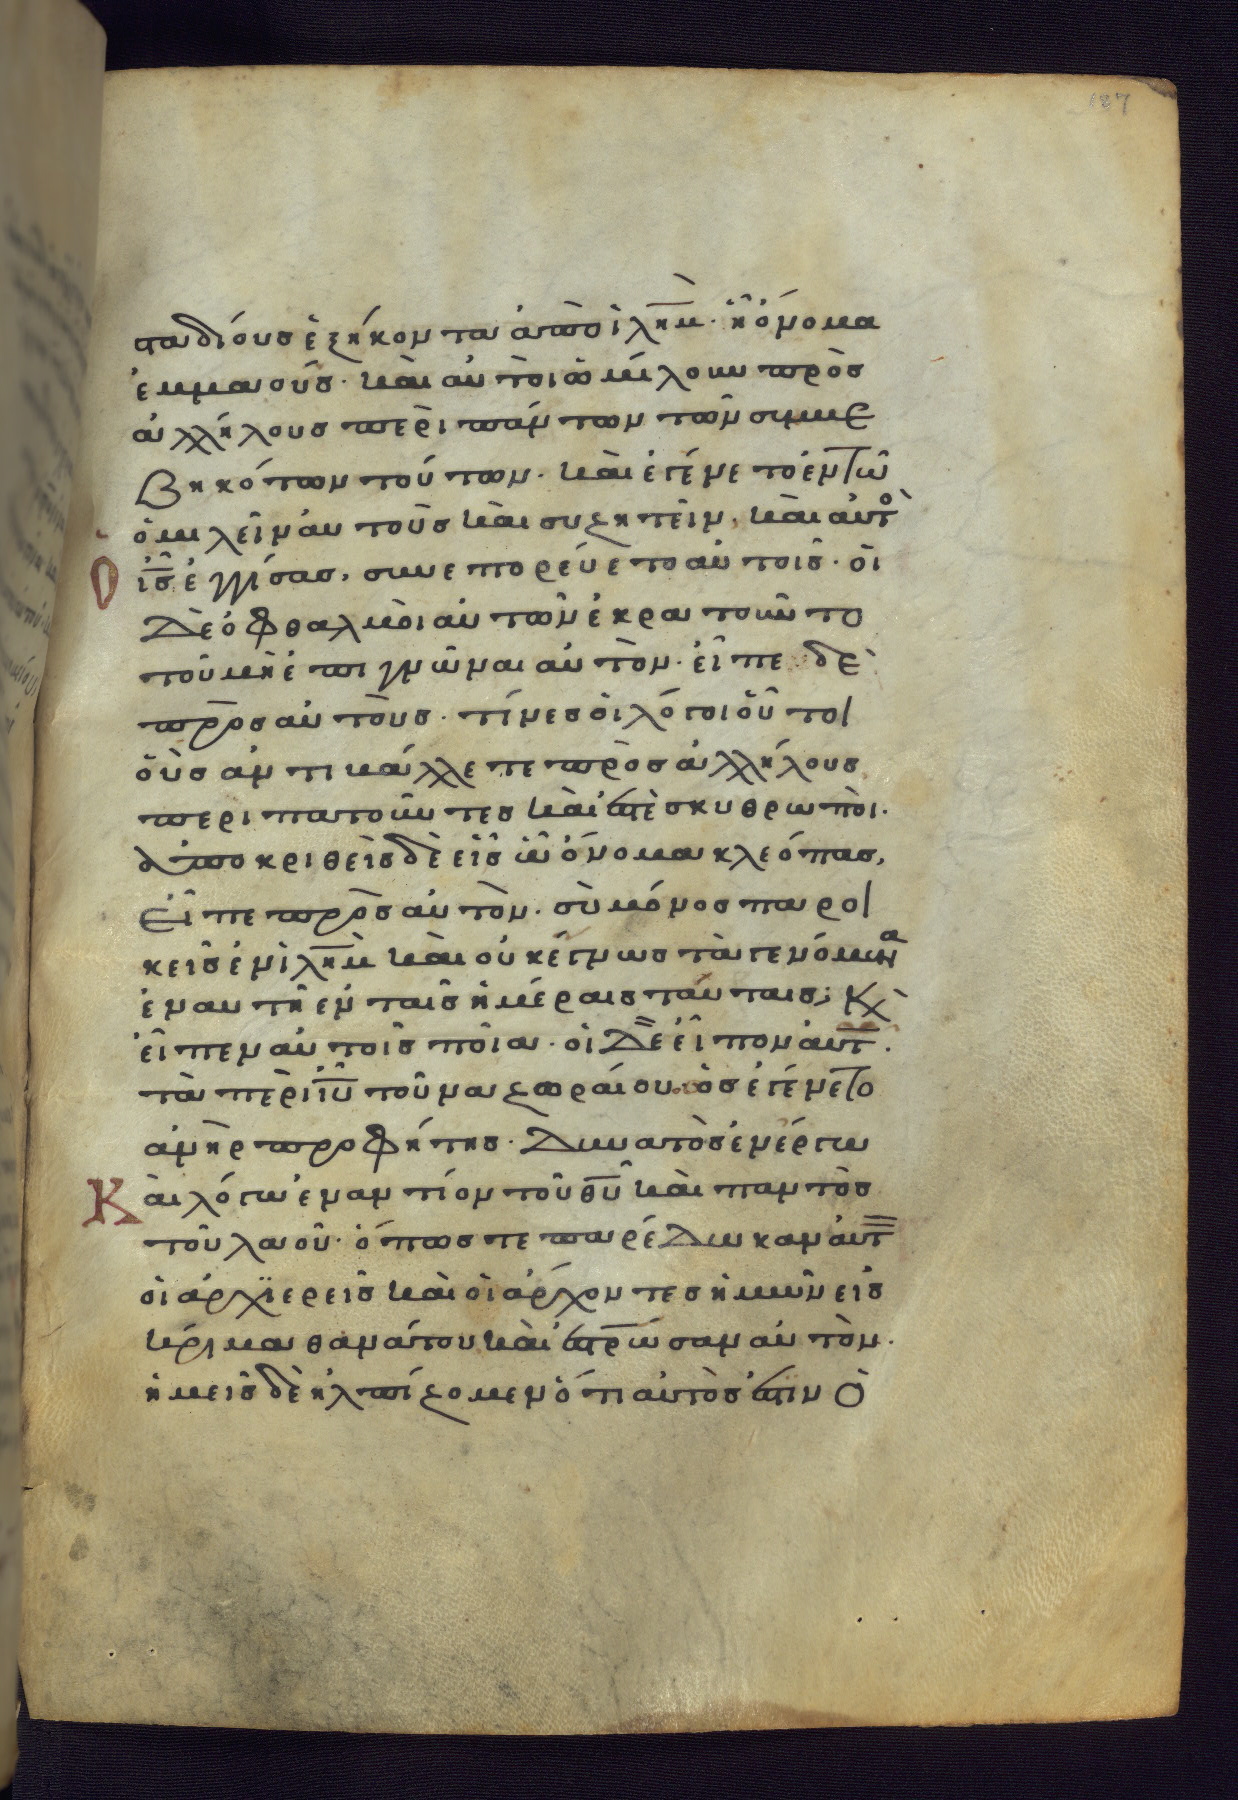 137
σταδίους ἑξήκοντα ἀπὸ ἱλη̅μ̀. ἧ ὄνομα
ἐμμαούς. καὶ αὐτοὶ ὡμίλουν πρὸς
ἀλλήλους περὶ πάντων τῶν συμβε
βηκότων τούτων. καὶ ἐγένετο ἐν τῶ
ὁμιλεῖν αὐτοὺς καὶ συζητεῖν, καὶ αὐτὸ
ὁ ι̅ς̅ ἐγγίσας, συνεπορεύετο αὐτοῖς. οἱ
δὲ ὀφθαλμοὶ αὐτῶν ἐκρατοῦντο
τοῦ μὴ ἐπιγνῶναι αὐτόν. εἶπε δὲ
πρὸς αὐτούς. τίνες οἱ λόγοι οὗτοι
οὓς ἀντιβάλλετε πρὸς ἀλλήλους
περιπατοῦντες καὶ ἐστὲ σκυθρωποί.
ἀποκριθεὶς δὲ εἷς ὧ ὄνομα κλεόπας,
εἶπε πρὸς αὐτόν. σὺ μόνος παροι
κεῖς ἐν ἱλη̅μ̀ καὶ οὐκ ἔγνως τὰ γενόμενα
ἐν αὐτῆ ἐν ταῖς ἡμέραις ταύταις; Κ̀
εἶπεν αὐτοῖς ποῖα. οἱ δὲ εἶπον αὐτ.
τὰ περὶ ι̅υ̅ τοῦ ναζωραίου. ὃς ἐγένετο
ἀνὴρ προφήτης. δυνατὸς ἐν ἔργω
Καὶ λόγω ἐναντίον τοῦ θ̅υ̅ καὶ παντὸς
τοῦ λαοῦ. ὅπως τε παρέδωκαν αὐτ
οἱ ἀρχϊερεῖς καὶ οἱ ἄρχοντες ἡμῶν εἰς
κρίμα θανάτου καὶ ἐστρώσαν αὐτόν.
ἡμεῖς δὲ ἠλπίζομεν ὅτι αὐτός ἐστιν ὁ